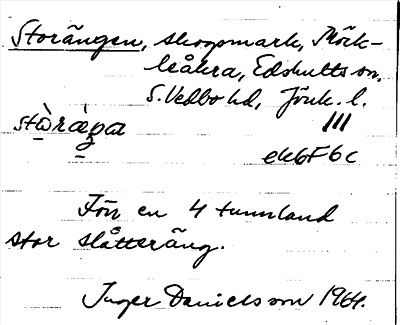 Storängen, skogsmark, Möck-
leåkra, Edshults sn,
S. Vedbo hd, Jönk. l.
III
ek6F6c
Förr en 4 tunnland
stor slåtteräng.
Inger Danielsson 1964.